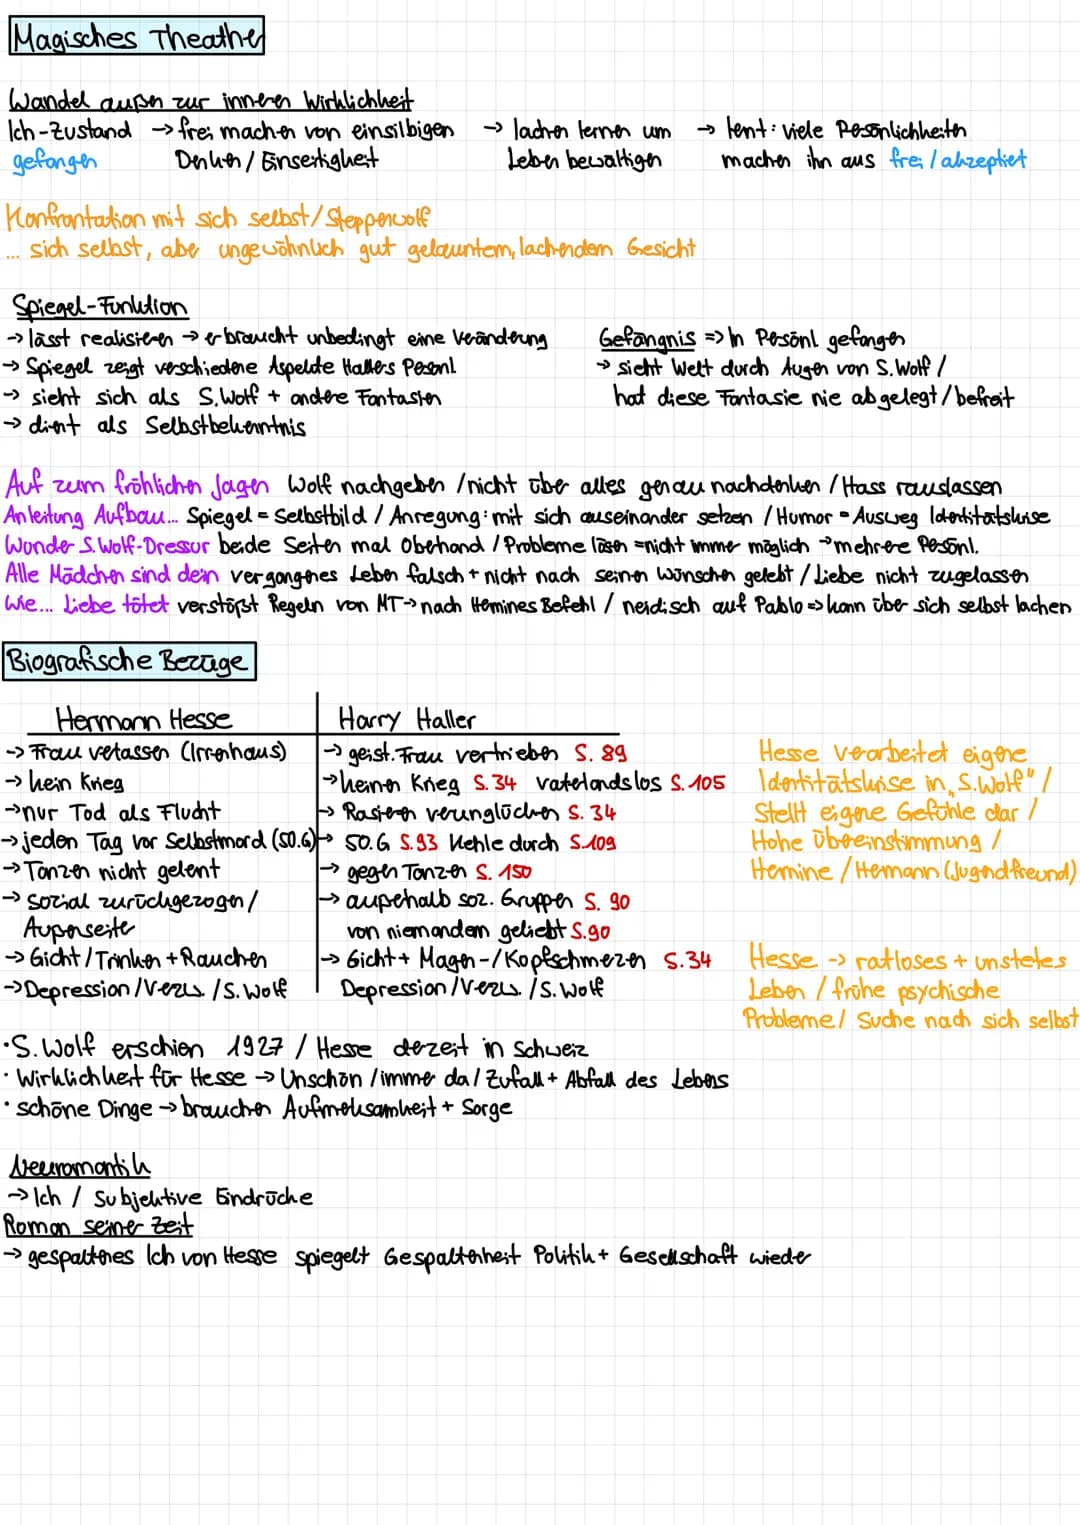 Magisches Theather
Wandel außen zur inneren Wirklichkeit
Ich-Zustand → frei machen von einsilbigen → lachen lernen um → lernt: viele Persönlichkeiten
gefangen Denken / Einseitigkeit Leben bewältigen machen ihn aus frei / akzeptiert
Konfrontation mit sich selbst / Steppenwolf
... sich selbst, aber ungewöhnlich gut gelauntem, lachendem Gesicht
Spiegel-Funktion
→ lässt realisieren → er braucht unbedingt eine Veränderung
→ Spiegel zeigt verschiedene Aspekte Hallers Persönl.
→ sieht sich als S.Wolf + andere Fantasien
→ dient als Selbstbekenntnis
Gefängnis => In Persönl. gefangen
→ sieht Welt durch Augen von S.Wolf /
hat diese Fantasie nie abgelegt / befreit
Auf zum fröhlichen Jagen Wolf nachgeben / nicht über alles genau nachdenken / Hass rauslassen
Anleitung Aufbau... Spiegel = Selbstbild / Anregung: mit sich auseinander setzen / Humor = Ausweg Identitätskrise
Wunder S.Wolf-Dressur beide Seiten mal Oberhand / Probleme lösen = nicht immer möglich → mehrere Persönl.
Alle Mädchen sind dein vergangenes Leben falsch + nicht nach seinen Wünschen gelebt / Liebe nicht zugelassen
Wie... Liebe tötet verstößt Regeln von MT → nach Hermines Befehl / neidisch auf Pablo => kann über sich selbst lachen
Biografische Bezüge
Hermann Hesse Harry Haller
→ Frau verlassen (Irrenhaus) → geist. Frau vertrieben S. 89
→ kein Krieg → keinen Krieg S. 34 vaterlandslos S. 105
→ nur Tod als Flucht → Rasieren verunglücken S. 34
→ jeden Tag vor Selbstmord (50.G) → 50.G S.93 Kehle durch S.109
→ Tanzen nicht gelernt → gegen Tanzen S. 150
→ sozial zurückgezogen / → außerhalb soz. Gruppen S. 90
Außenseiter von niemandem geliebt S.90
→ Gicht / Trinken + Rauchen → Gicht + Magen-/Kopfschmerzen S.34
→ Depression / Verzw. / S.Wolf Depression / Verzw. / S.Wolf
Hesse verarbeitet eigene
Identitätskrise in „S.Wolf" /
Stellt eigene Gefühle dar /
Hohe Übereinstimmung /
Hermine / Hermann (Jugendfreund)
Hesse -> ratloses + unstetes
Leben / frühe psychische
Probleme / Suche nach sich selbst
· S.Wolf erschien 1927 / Hesse derzeit in Schweiz
· Wirklichkeit für Hesse → Unschön / immer da / Zufall + Abfall des Lebens
· schöne Dinge → brauchen Aufmerksamkeit + Sorge
Neuromantik
→ Ich / Subjektive Eindrücke
Roman seiner Zeit
→ gespaltenes Ich von Hesse spiegelt Gespaltenheit Politik + Gesellschaft wieder